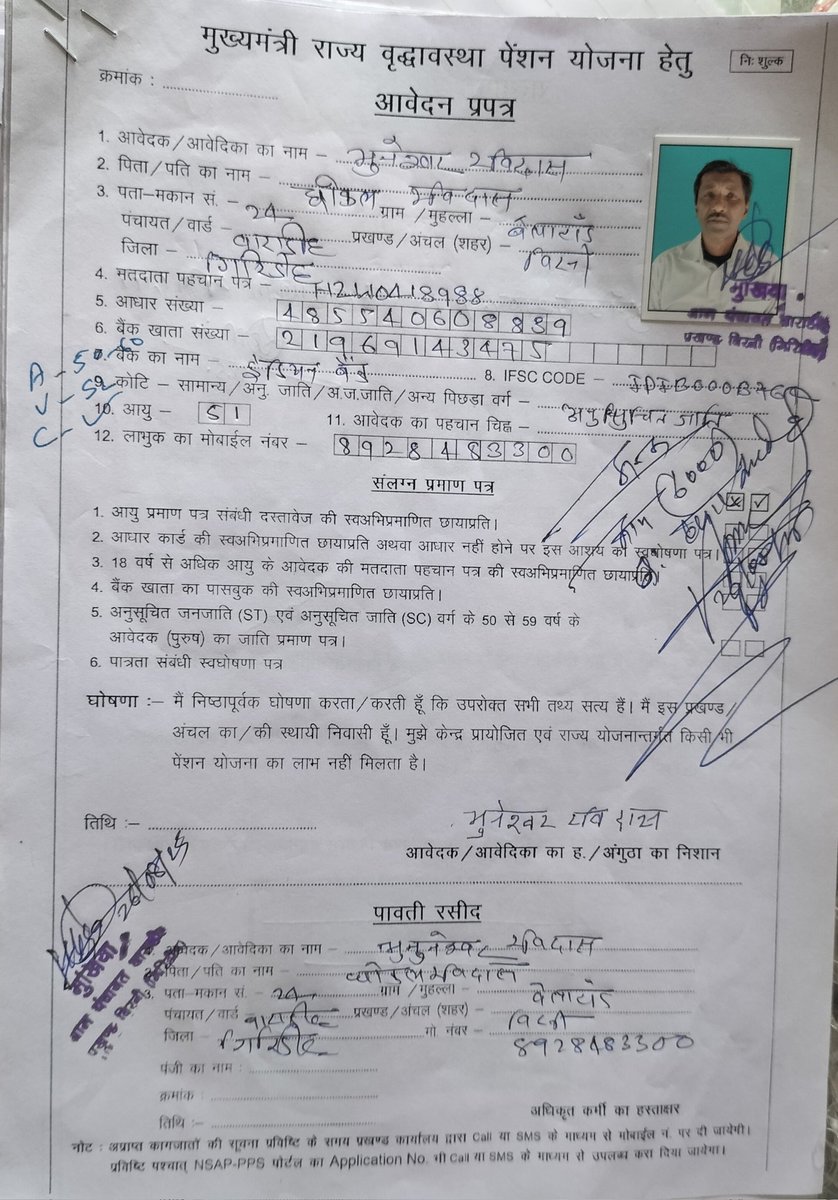 मुख्यमंत्री राज्य वृद्धावस्था पेंशन योजना हेतु
निःशुल्क
क्रमांक :
आवेदन प्रपत्र
1. आवेदक/आवेदिका का नाम – मुनेश्वर रविदास
2. पिता/पति का नाम – रविदास
3. पता–मकान सं. – 24 ग्राम/मुहल्ला –
पंचायत/वार्ड – प्रखण्ड/अंचल (शहर) – बिरनी
जिला – गिरिडीह
4. मतदाता पहचान पत्र –
5. आधार संख्या – 485540608839
6. बैंक खाता संख्या – 21969143475
7. बैंक का नाम – इंडियन बैंक 8. IFSC CODE –
9. कोटि – सामान्य/अनु. जाति/अ.ज.जाति/अन्य पिछड़ा वर्ग – अनुसूचित जाति
10. आयु – 51 11. आवेदक का पहचान चिह्न –
12. लाभुक का मोबाईल नंबर – 8928483300
मुखिया
ग्राम पंचायत
प्रखण्ड बिरनी (गिरिडीह)
संलग्न प्रमाण पत्र
1. आयु प्रमाण पत्र संबंधी दस्तावेज की स्वअभिप्रमाणित छायाप्रति।
2. आधार कार्ड की स्वअभिप्रमाणित छायाप्रति अथवा आधार नहीं होने पर इस आशय की स्वघोषणा पत्र।
3. 18 वर्ष से अधिक आयु के आवेदक की मतदाता पहचान पत्र की स्वअभिप्रमाणित छायाप्रति।
4. बैंक खाता का पासबुक की स्वअभिप्रमाणित छायाप्रति।
5. अनुसूचित जनजाति (ST) एवं अनुसूचित जाति (SC) वर्ग के 50 से 59 वर्ष के
आवेदक (पुरुष) का जाति प्रमाण पत्र।
6. पात्रता संबंधी स्वघोषणा पत्र
घोषणा :– मैं निष्ठापूर्वक घोषणा करता/करती हूँ कि उपरोक्त सभी तथ्य सत्य हैं। मैं इस प्रखण्ड/
अंचल का/की स्थायी निवासी हूँ। मुझे केन्द्र प्रायोजित एवं राज्य योजनान्तर्गत किसी भी
पेंशन योजना का लाभ नहीं मिलता है।
तिथि :– मुनेश्वर रविदास
आवेदक/आवेदिका का ह./अंगुठा का निशान
26/08/25
पावती रसीद
आवेदक/आवेदिका का नाम – रविदास
पिता/पति का नाम – रविदास
3. पता–मकान सं. – 24 ग्राम/मुहल्ला –
पंचायत/वार्ड प्रखण्ड/अंचल (शहर) – बिरनी
जिला – गिरिडीह मो. नंबर – 8928483300
मुखिया
ग्राम पंचायत
प्रखण्ड बिरनी (गिरिडीह)
पंजी का नाम :
क्रमांक :
तिथि :– अधिकृत कर्मी का हस्ताक्षर
नोट : अप्राप्त कागजातों की सूचना प्रविष्टि के समय प्रखण्ड कार्यालय द्वारा Call या SMS के माध्यम से मोबाईल नं. पर दी जायेगी।
प्रविष्टि पश्चात् NSAP-PPS पोर्टल का Application No. भी Call या SMS के माध्यम से उपलब्ध करा दिया जायेगा।